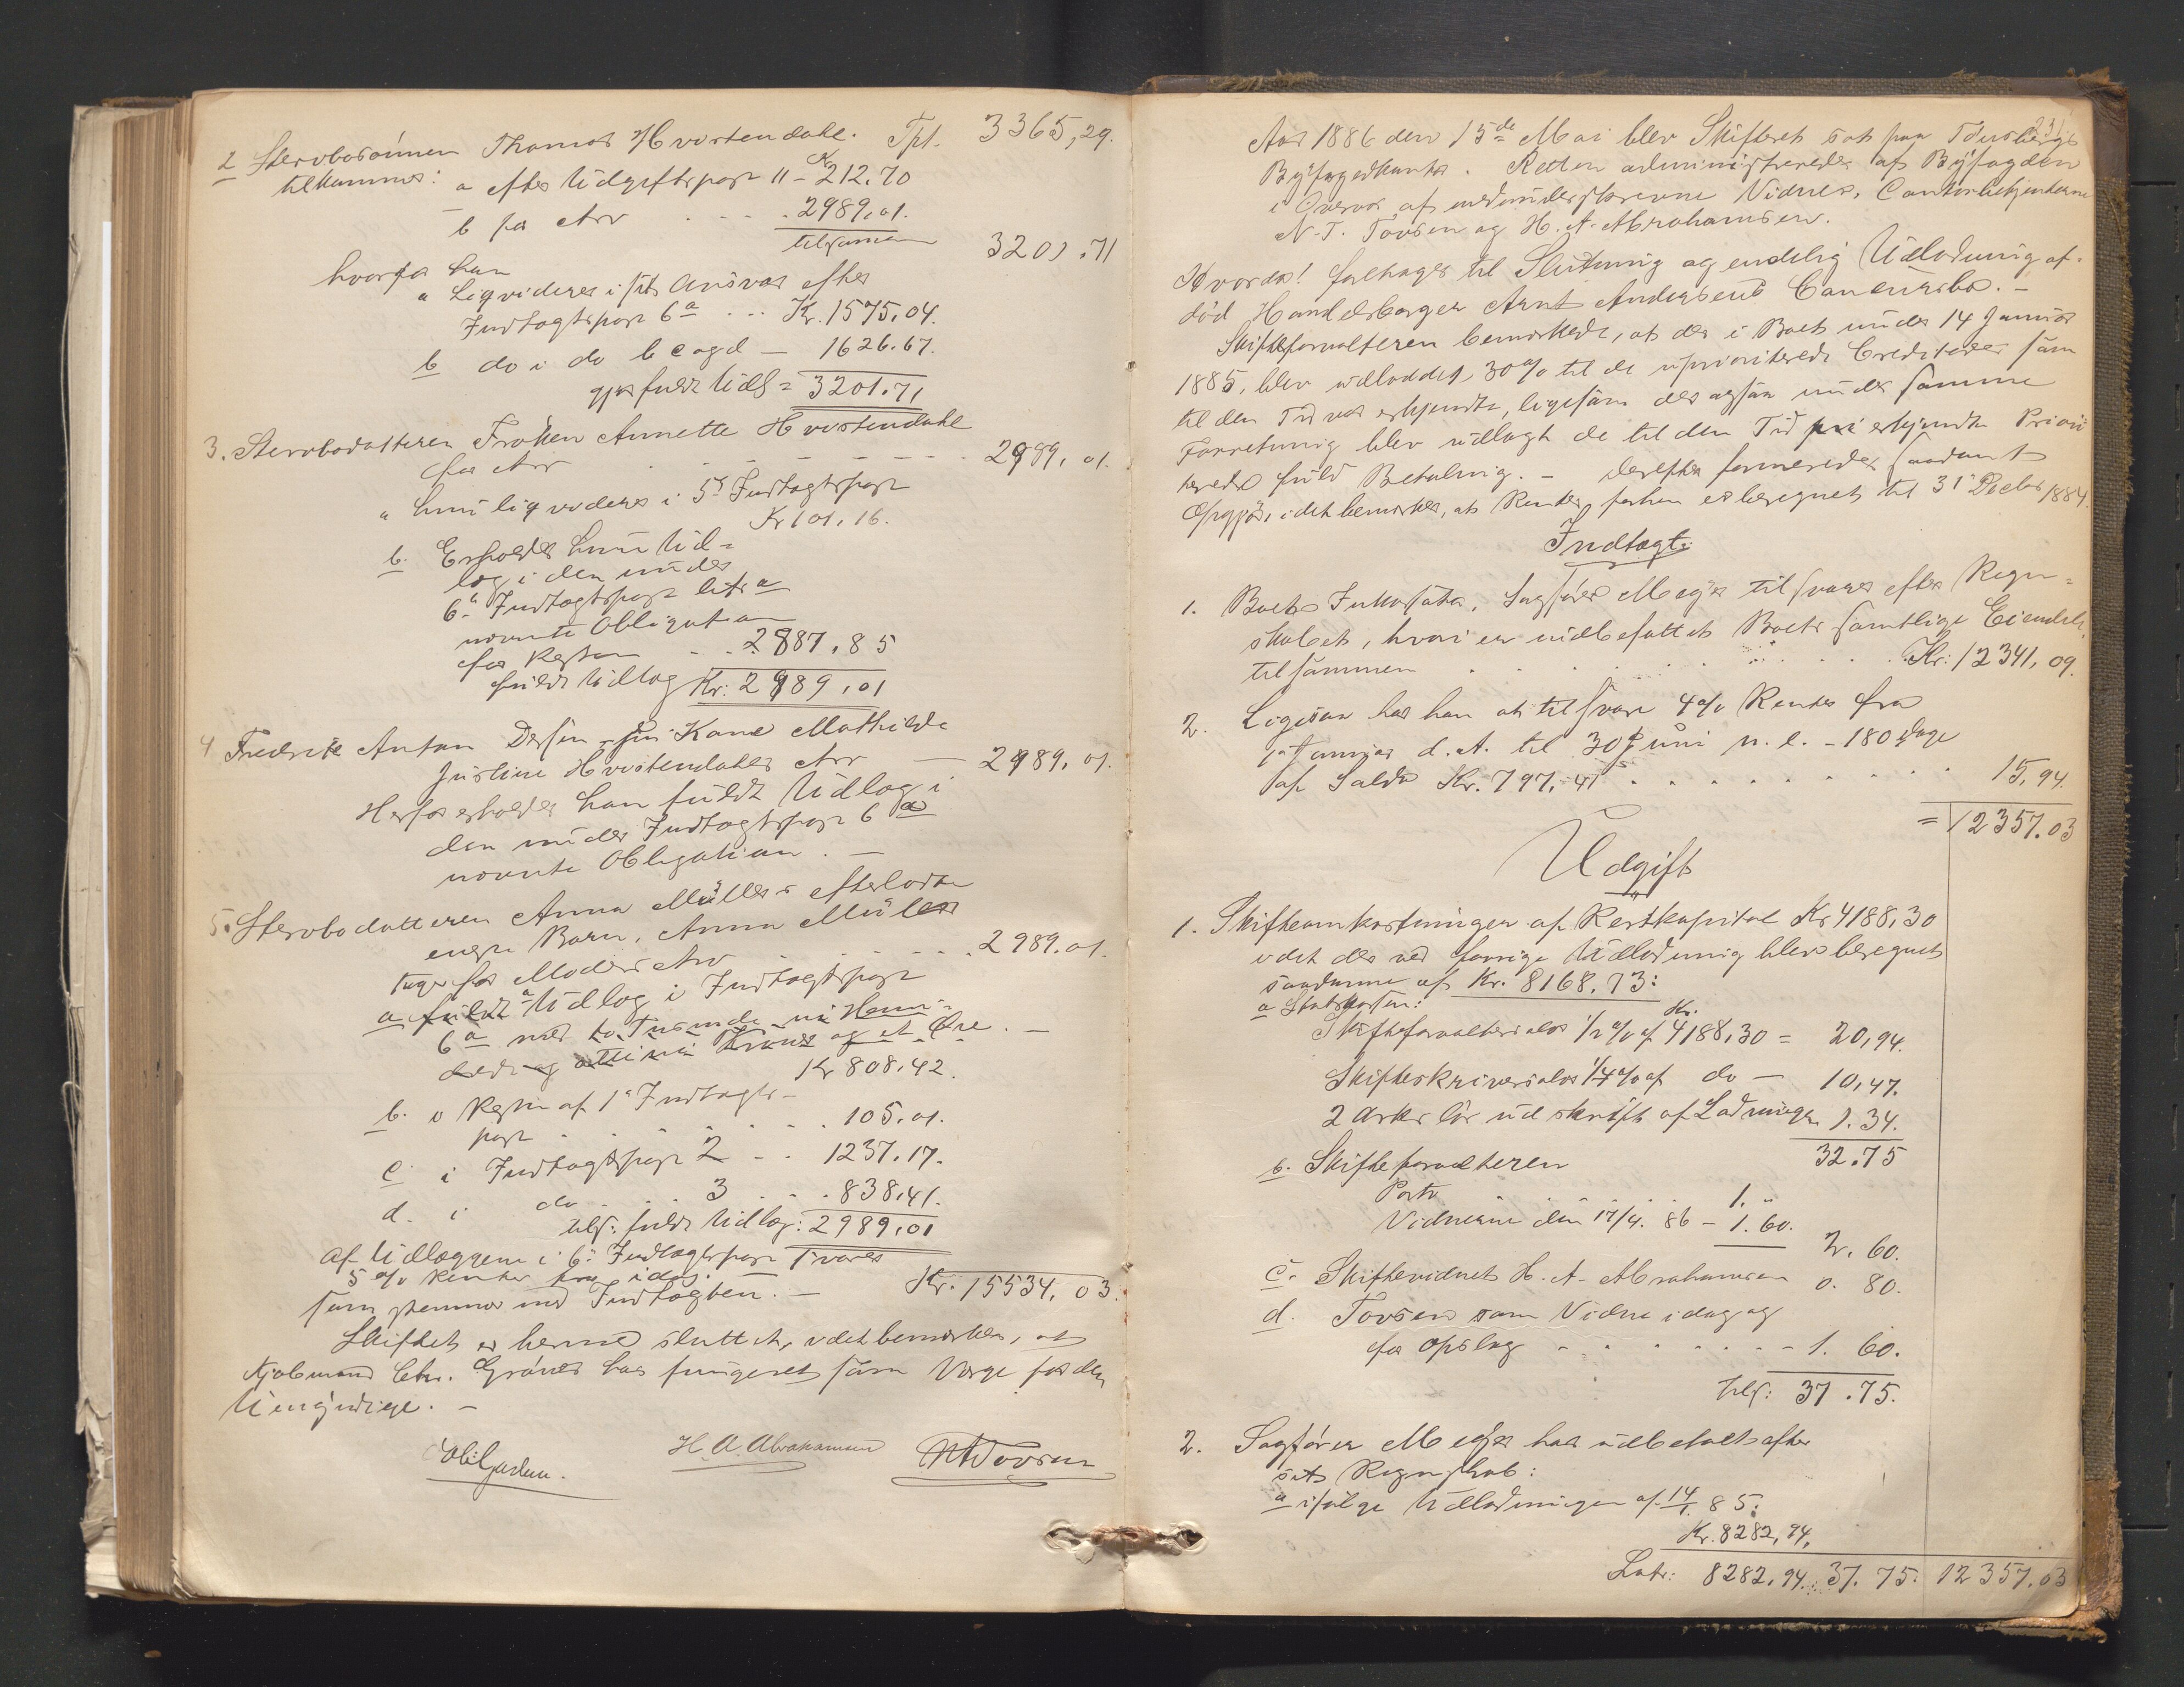 2 Stervbosønnen Thomas Hvistendahl. Tpt. 3365,29.
tilkommer: a efter Udgiftspost 11 - Kr 212.70
b for Arv . . . . 2989,01.
tilsammen 3201.71
hvorfor han
a Liqviderer i sit Ansvar efter
Indtægtspost 6a . . . Kr. 1575,04.
b do i do b c og d - 1626.67.
gjør fuldt Udl = 3201.71
3. Stervbodatteren Frøken Annette Hvistendahl
for Arv . . . . 2989,01.
a hun liqviderer i 5te Indtægtspost
Kr 101,16.
b. Erholder hun Ud=
læg i den under
6te Indtægtspost litr a
nævnte Obligation
for Resten . . . 2887,85
fuldt Udlæg Kr: 2989,01
4 Fredrik Anton Dessin - sin Kone Mathilde
Justine Hvistendahls Arv — 2989,01.
Herfor erholder han fuldt Udlæg i
den under Indtægtspost 6 a
nævnte Obligation. —
5. Stervbodatteren Anna Müllers efterladte
eneste Barn, Anna Müller
tager for Moders Arv . . . . 2989.01.
a fuldt Udlæg i Indtægtspost
6a med to Tusinde ni Hun=
drede og otti ni Kroner og et Øre. —
Kr 808,42.
b. i Resten af 1ste Indtægts-
post . . . . . 105,01.
c. i Indtægtspost 2 - . 1237.17.
d. i do . . . 3 . . . 838,41.
tils: fuldt Udlæg: 2989,01
Af Udlæggene i 6te Indtægtspost svares
5 % Renter fra idag.
Kr. 15534,03.
som stemmer med Indtægten. —
Skiftet er hermed sluttet, idet bemærkes, at
Kjøbmand Chr. Grøner har fungeret som Værge for den
Umyndige. —
H. A. Abrahamsen NTTovsen
231
Aar 1886 den 15de Mai blev Skifteret sat paa Tønsbergs
Byfogedkontor. Retten administreredes af Byfogden
i Overvær af medunderskrevne Vidner, Contorbetjentene
N. T. Tovsen og H. A. Abrahamsen.
Hvorda! foretoges til Slutning og endelig Udlodning af-
død Handelsborger Arnt Andersens Concursbo. —
Skifteforvalteren bemærkede, at der i Boet under 14 Januar
1885, blev udloddet 30 % til de upriotiterede Creditorer som
til den Tid var erkjendte, ligesom der ogsaa under samme
Forretning blev udlagt de til den Tid erkjendte Priori
terede fuld Betaling. — Derefter formeredes saadant
Opgjør, idet bemærkes, at Renter forhen er beregnet til 31 Decbr 1884.
Indtægt:
1. Boets Inkassator, Sagfører Meyer tilsvarer efter Regn=
skabet, hvori er indbefattet Boets samtlige Eiendele,
tilsammen . . . . . . . . Kr. 12341,09.
2. Ligesaa har han at tilsvare 4 % Renter fra
1 Januar d. A. til 30 Juni n. e. - 180 Dage
af Saldo Kr. 797,41 . . . . . . . . . 15,94.
= 12357.03
Udgift
1. Skifteomkostningen af Restkapital Kr 4188,30
idet der ved forrige Udlodning blev beregnet
saadanne af Kr. 8168.73:
a Statskassen: Kr.
Skifteforvaltersalær 1/2 % af 4188,30 = 20,94.
Skifteskriversalær 1/4 % af do — 10,47.
2 Arks lør udskrift af Lodningen 1.34.
32.75
b. Skifteforvalteren
Porto . . . . 1. "
Vidnerne den 17/4. 86 - 1.60.
2. 60.
c. Skiftevidnet H. A. Abrahamsen 0. 80.
d. Tovsen som Vidne idag og
for Opslag . . . . . . . - 1. 60.
tils: 37.75.
2. Sagfører Meyer har udbetalt efter
sit Regnskab:
a ifølge Udlodningen af 14/1. 85:
Kr. 8282,94.
Latr: 8282,94. 37.75. 12357.03